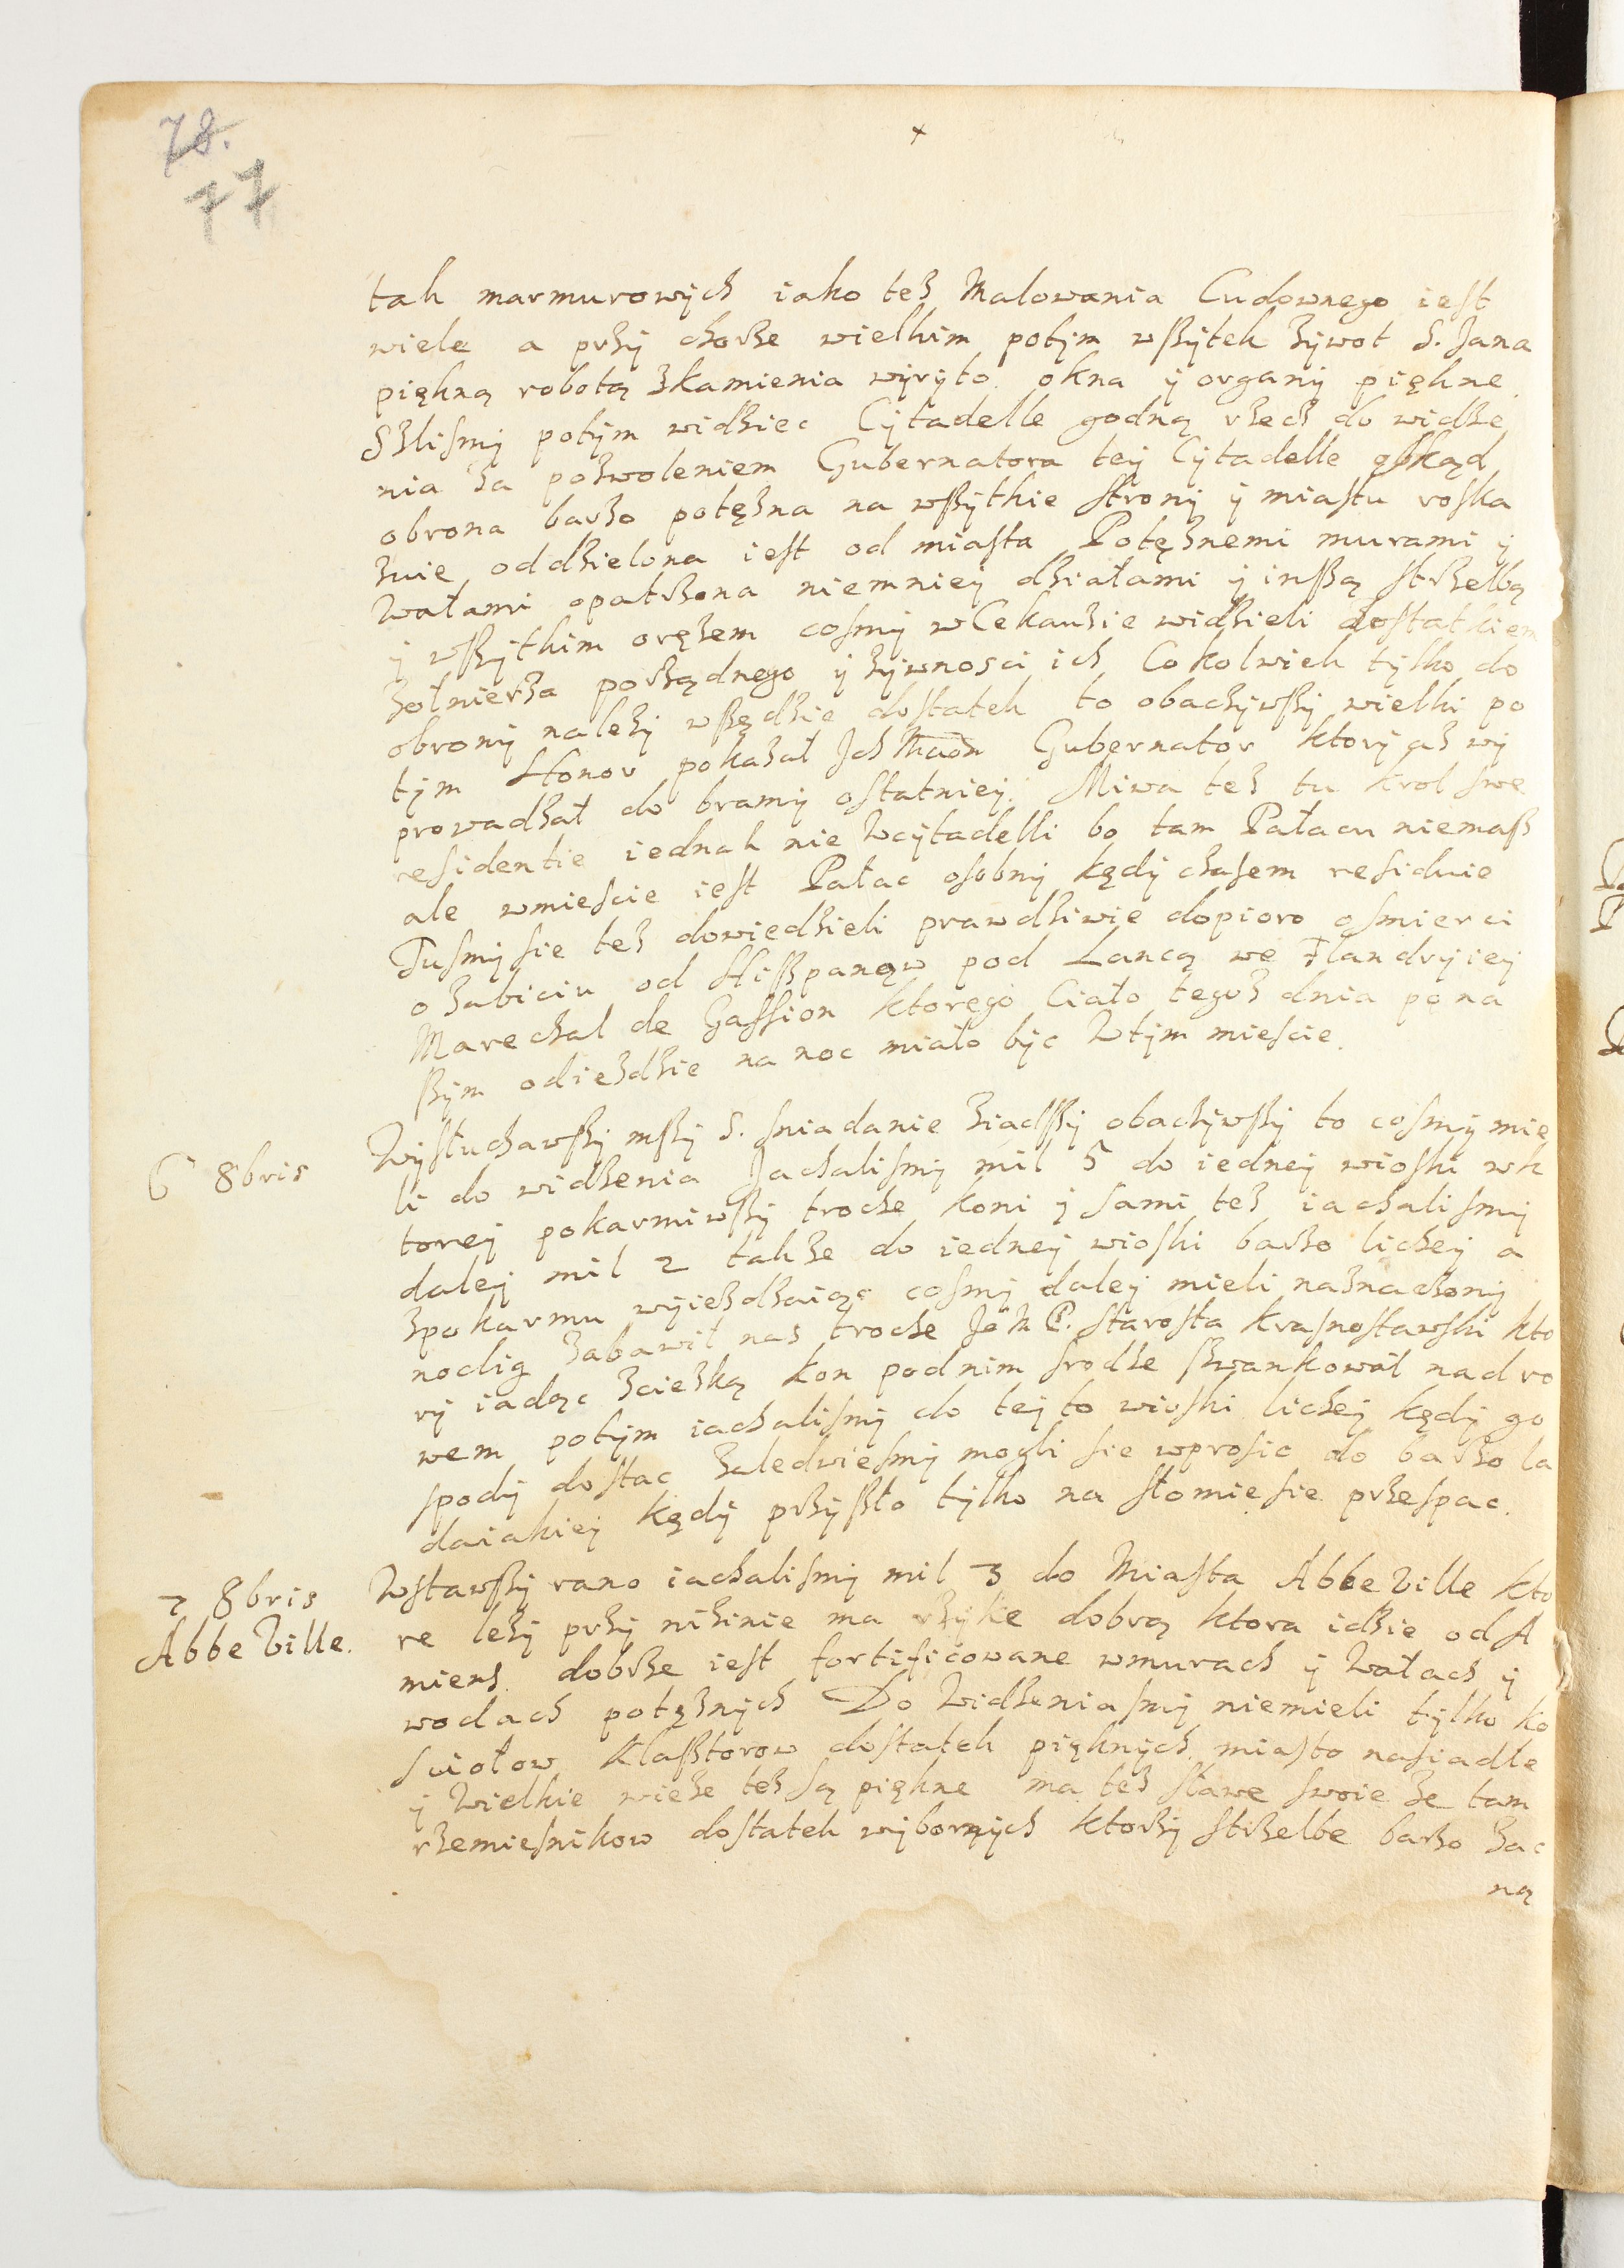 78.
77
tak marmurowych iako tez Malowania Cudownego iest
wiele a przy chorze wielkim potym wszytek zywot S. Jana
piękną robotą zkamienia wyryto. okna y organy piękne.
Szlismy potym widziec Cytadelle godną rzecz do widze
nia za pozwoleniem Gubernatora tey Cytadelle zkąd
obrona barzo potęzna na wszytkie strony y miastu roska
zuie oddzielona iest od miasta Potęznemi murami y
Wałami opatrzona niemniey działami y inszą strzelbą
y wszytkim oręzem cosmy wCekauzie widzieli dostatkiem
zołnierza porządnego y zywnosci ich Cokolwiek tylko do
obrony nalezy wszędzie dostatek to obaczywszy wielki po
tym Honor pokazał Jch Gubernator ktory az wy
prowadzał do bramy ostatniey. Miwa tez tu Krol swe
residentie iednak nie Wcytadelli bo tam Pałacu niemasz
ale wmiescie iest Pałac osobny kędy czasem residuie
Tusmy sie tez dowiedzieli prawdziwie dopioro osmierci
o zabiciu od Hiszpanow pod Lancą we Flandryiey
Marechal de Gassion ktorego Ciało tegoz dnia po na
szym odiezdzie na noc miało byc Wtym miescie.
6 8bris
Wysłuchawszy mszy S. sniadanie ziadszy obaczywszy to cosmy mie
li do widzenia Jachalismy mil 5 do iedney wioski wk
torey pokarmiwszy troche koni y sami tez iachalismy
daley mil 2 takze do iedney wioski barzo lichey a
zpokarmu wyiezdzaiąc cosmy daley mieli naznaczony
noclig zabawił nas troche JeM P. starosta krasnostawski kto
ry iadąc zciezką kon podnim srodze szwankował nad ro
wem potym iachalismy do tey to wioski lichey kędy go
spody dostac zaledwiesmy mogli sie wprosic do barzo la
daiakiey kędy przyszło tylko na słomie sie przespac.
7 8bris
Abbe Ville.
Wstawszy rano iachalismy mil 3 do Miasta Abbe Ville kto
re lezy przy nizinie ma rzykie dobrą ktora idzie od A
miens. dobrze iest fortificowane wmurach y Wałach y
wodach potęznych Do Widzeniasmy niemieli tylko ko
sciołow klasztorow dostatek pięknych miasto nasiadłe
y Wielkie wieze tez są piękne ma tez sławe swoie ze tam
rzemiesnikow dostatek wybornych ktorzy strzelbe barzo zac
ną